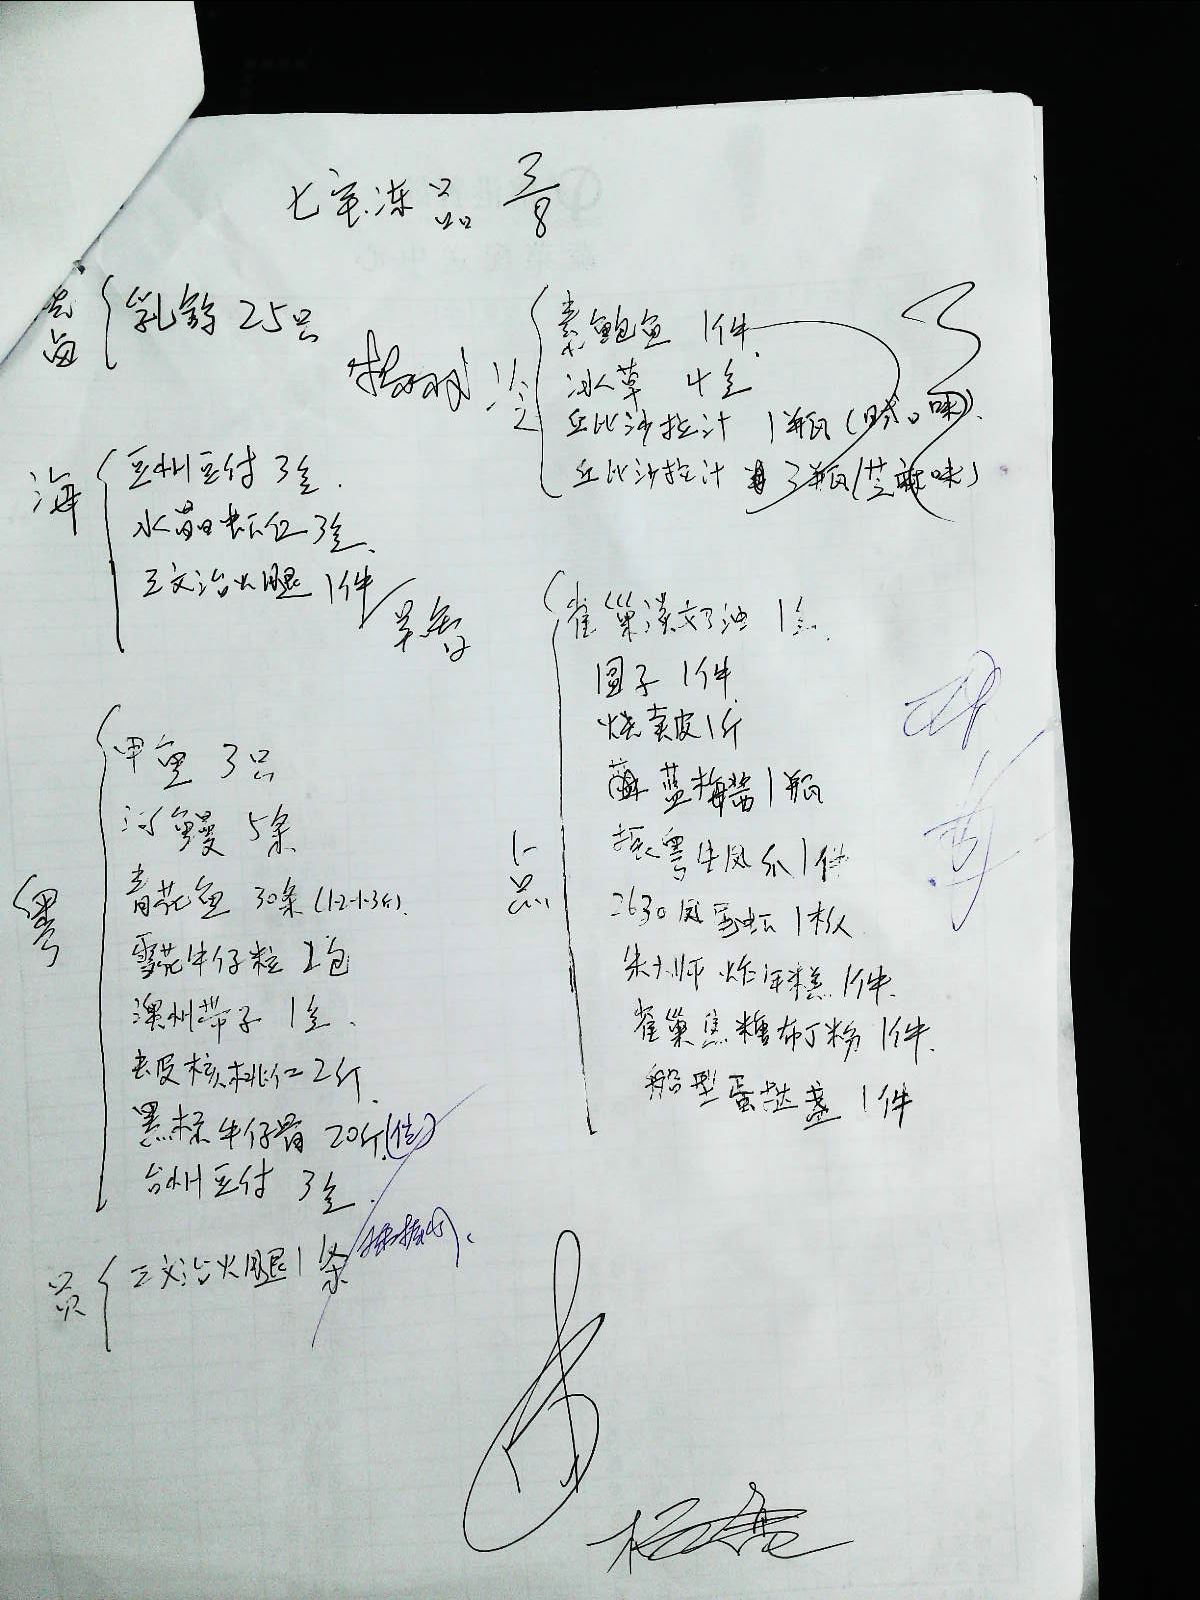 七宝冻品 3/8
卤
乳鸽 25只
海
豆州豆付 3盒.
水晶虾仁 3盒.
三文治火腿 1件
粤
甲鱼 3只
河鳗 5条
青花鱼 30条 (1.2-1.3斤).
雪花牛仔粒 2包
澳州带子 1盒.
去皮核桃仁 2斤.
黑椒牛仔骨 20斤.
台州豆付 3盒.
员
三文治火腿 1条
冷
素鲍鱼 1件.
冰草 4盒
丘比沙拉汁 1瓶(日式口味).
丘比沙拉汁 3瓶(芝麻味)
点
雀巢淡奶油 1盒.
圆子 1件
烧卖皮 1斤
蓝梅酱 1瓶
振粤生凤爪 1件
2630凤尾虾 1板
朱大师炸年糕 1件.
雀巢焦糖布丁粉 1件.
船型蛋挞盏 1件